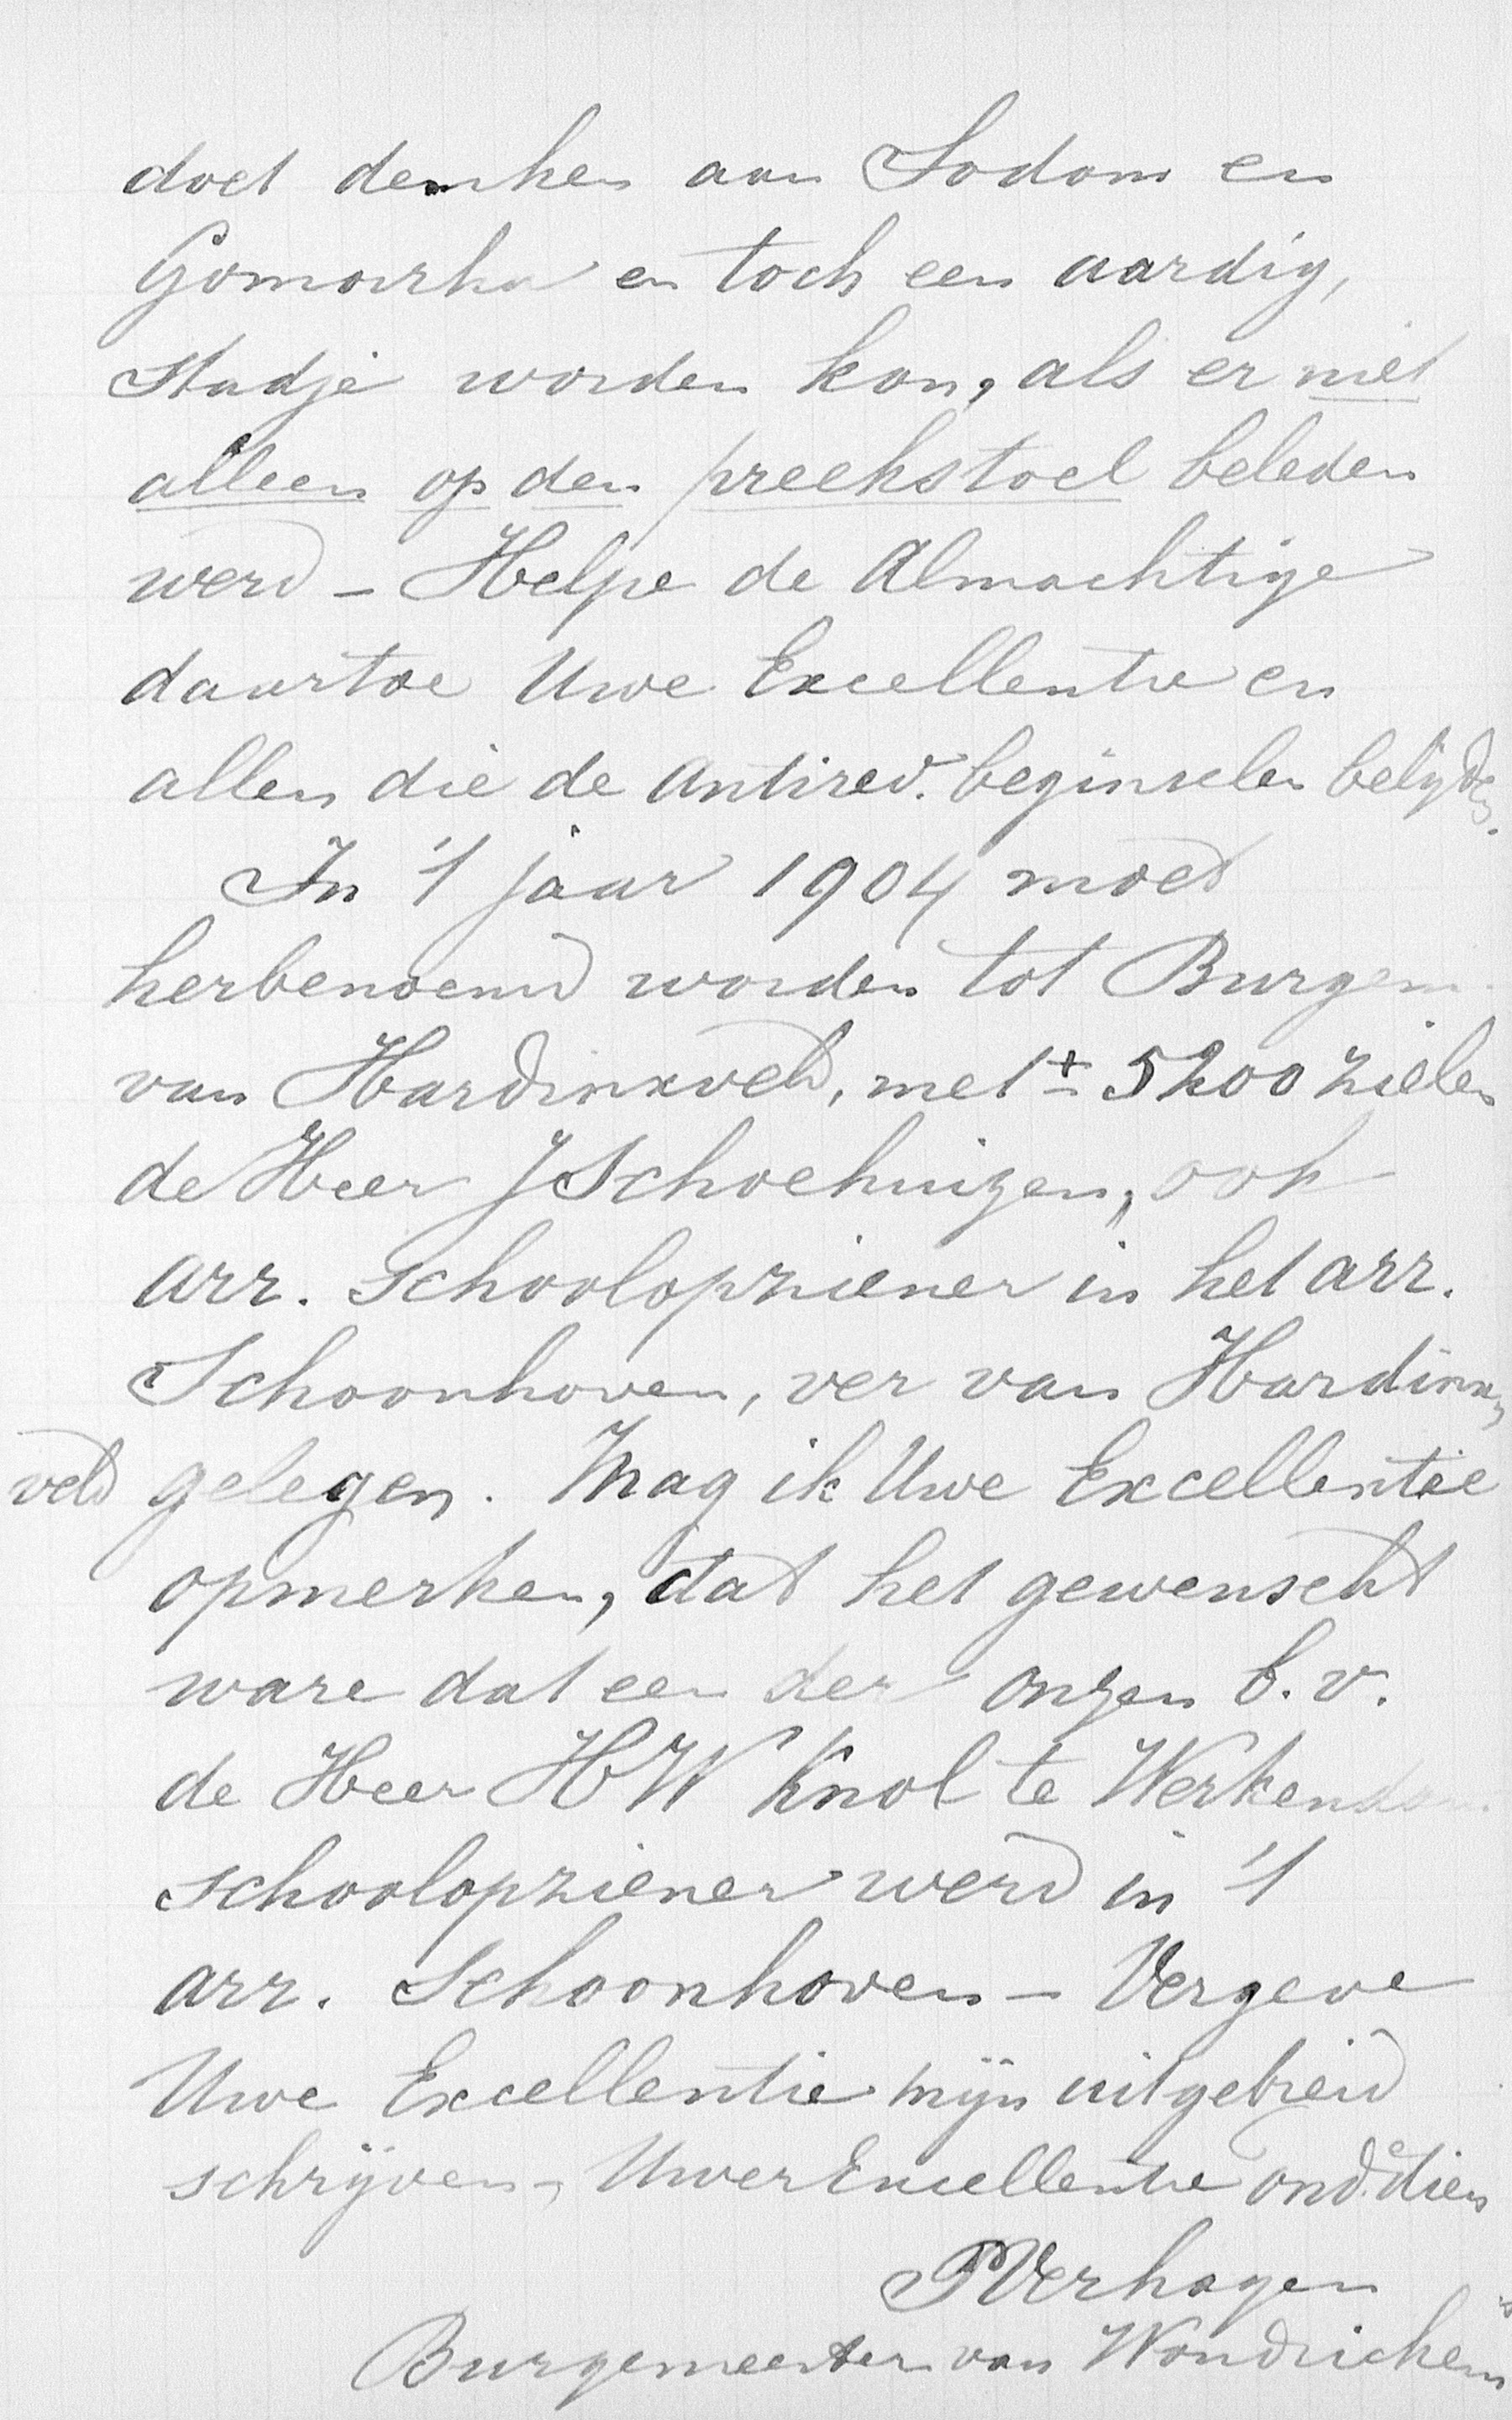 doet denken aan Sodom en
Gomorrha en toch een aardig,
Stadje worden kon, als er niet
alleen op den preekstoel beleden
werd - Helpe de Almachtige
daartoe Uwe Excellentie en
allen die de Antirev. beginselen belijden.
In 't jaar 1904 moet
herbenoemd worden tot Burgem.
van Hardinxveld, met ± 5200 zielen
de Heer J Schoehuizen, ook
arr. Schoolopziener in het arr.
Schoonhoven, ver van Hardinx,
veld gelegen. Mag ik Uwe Excellentie
opmerken, dat het gewenscht
ware dat een der onzen b.v.
de Heer HW Knol te Werkendam
schoolopziener werd in 't
arr. Schoonhoven - Vergeve
Uwe Excellentie mijn uitgebreid
schrijven - Uwer Excellentie ond. dien
P Verhagen
Burgemeester van Woudrichem